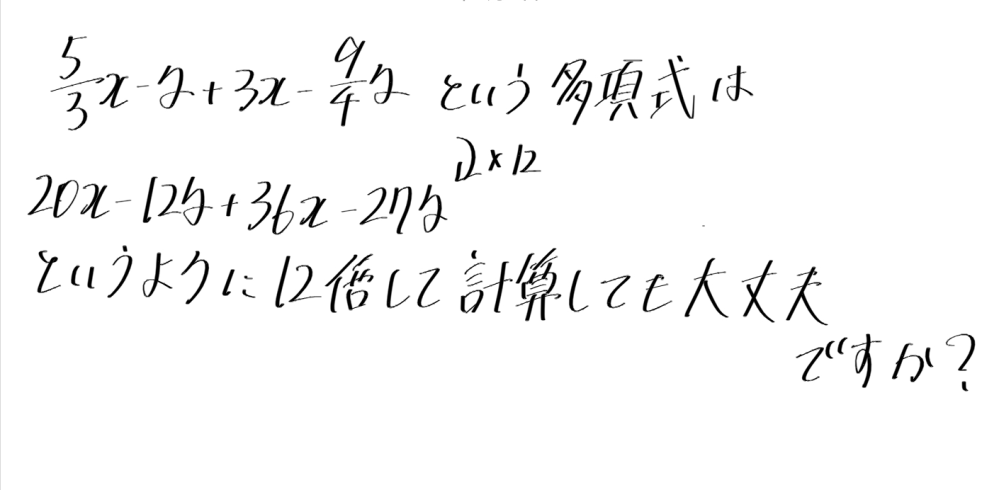 5/3x-y+3x-9/4y という多項式は
⤵×12
20x-12y+36x-27y
というように12倍して計算しても大丈夫
ですか?